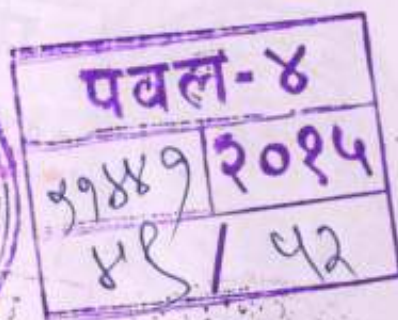 पवल-४
११४४१ २०१५
४९ / ५२